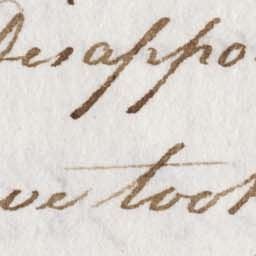 Disappo
we took